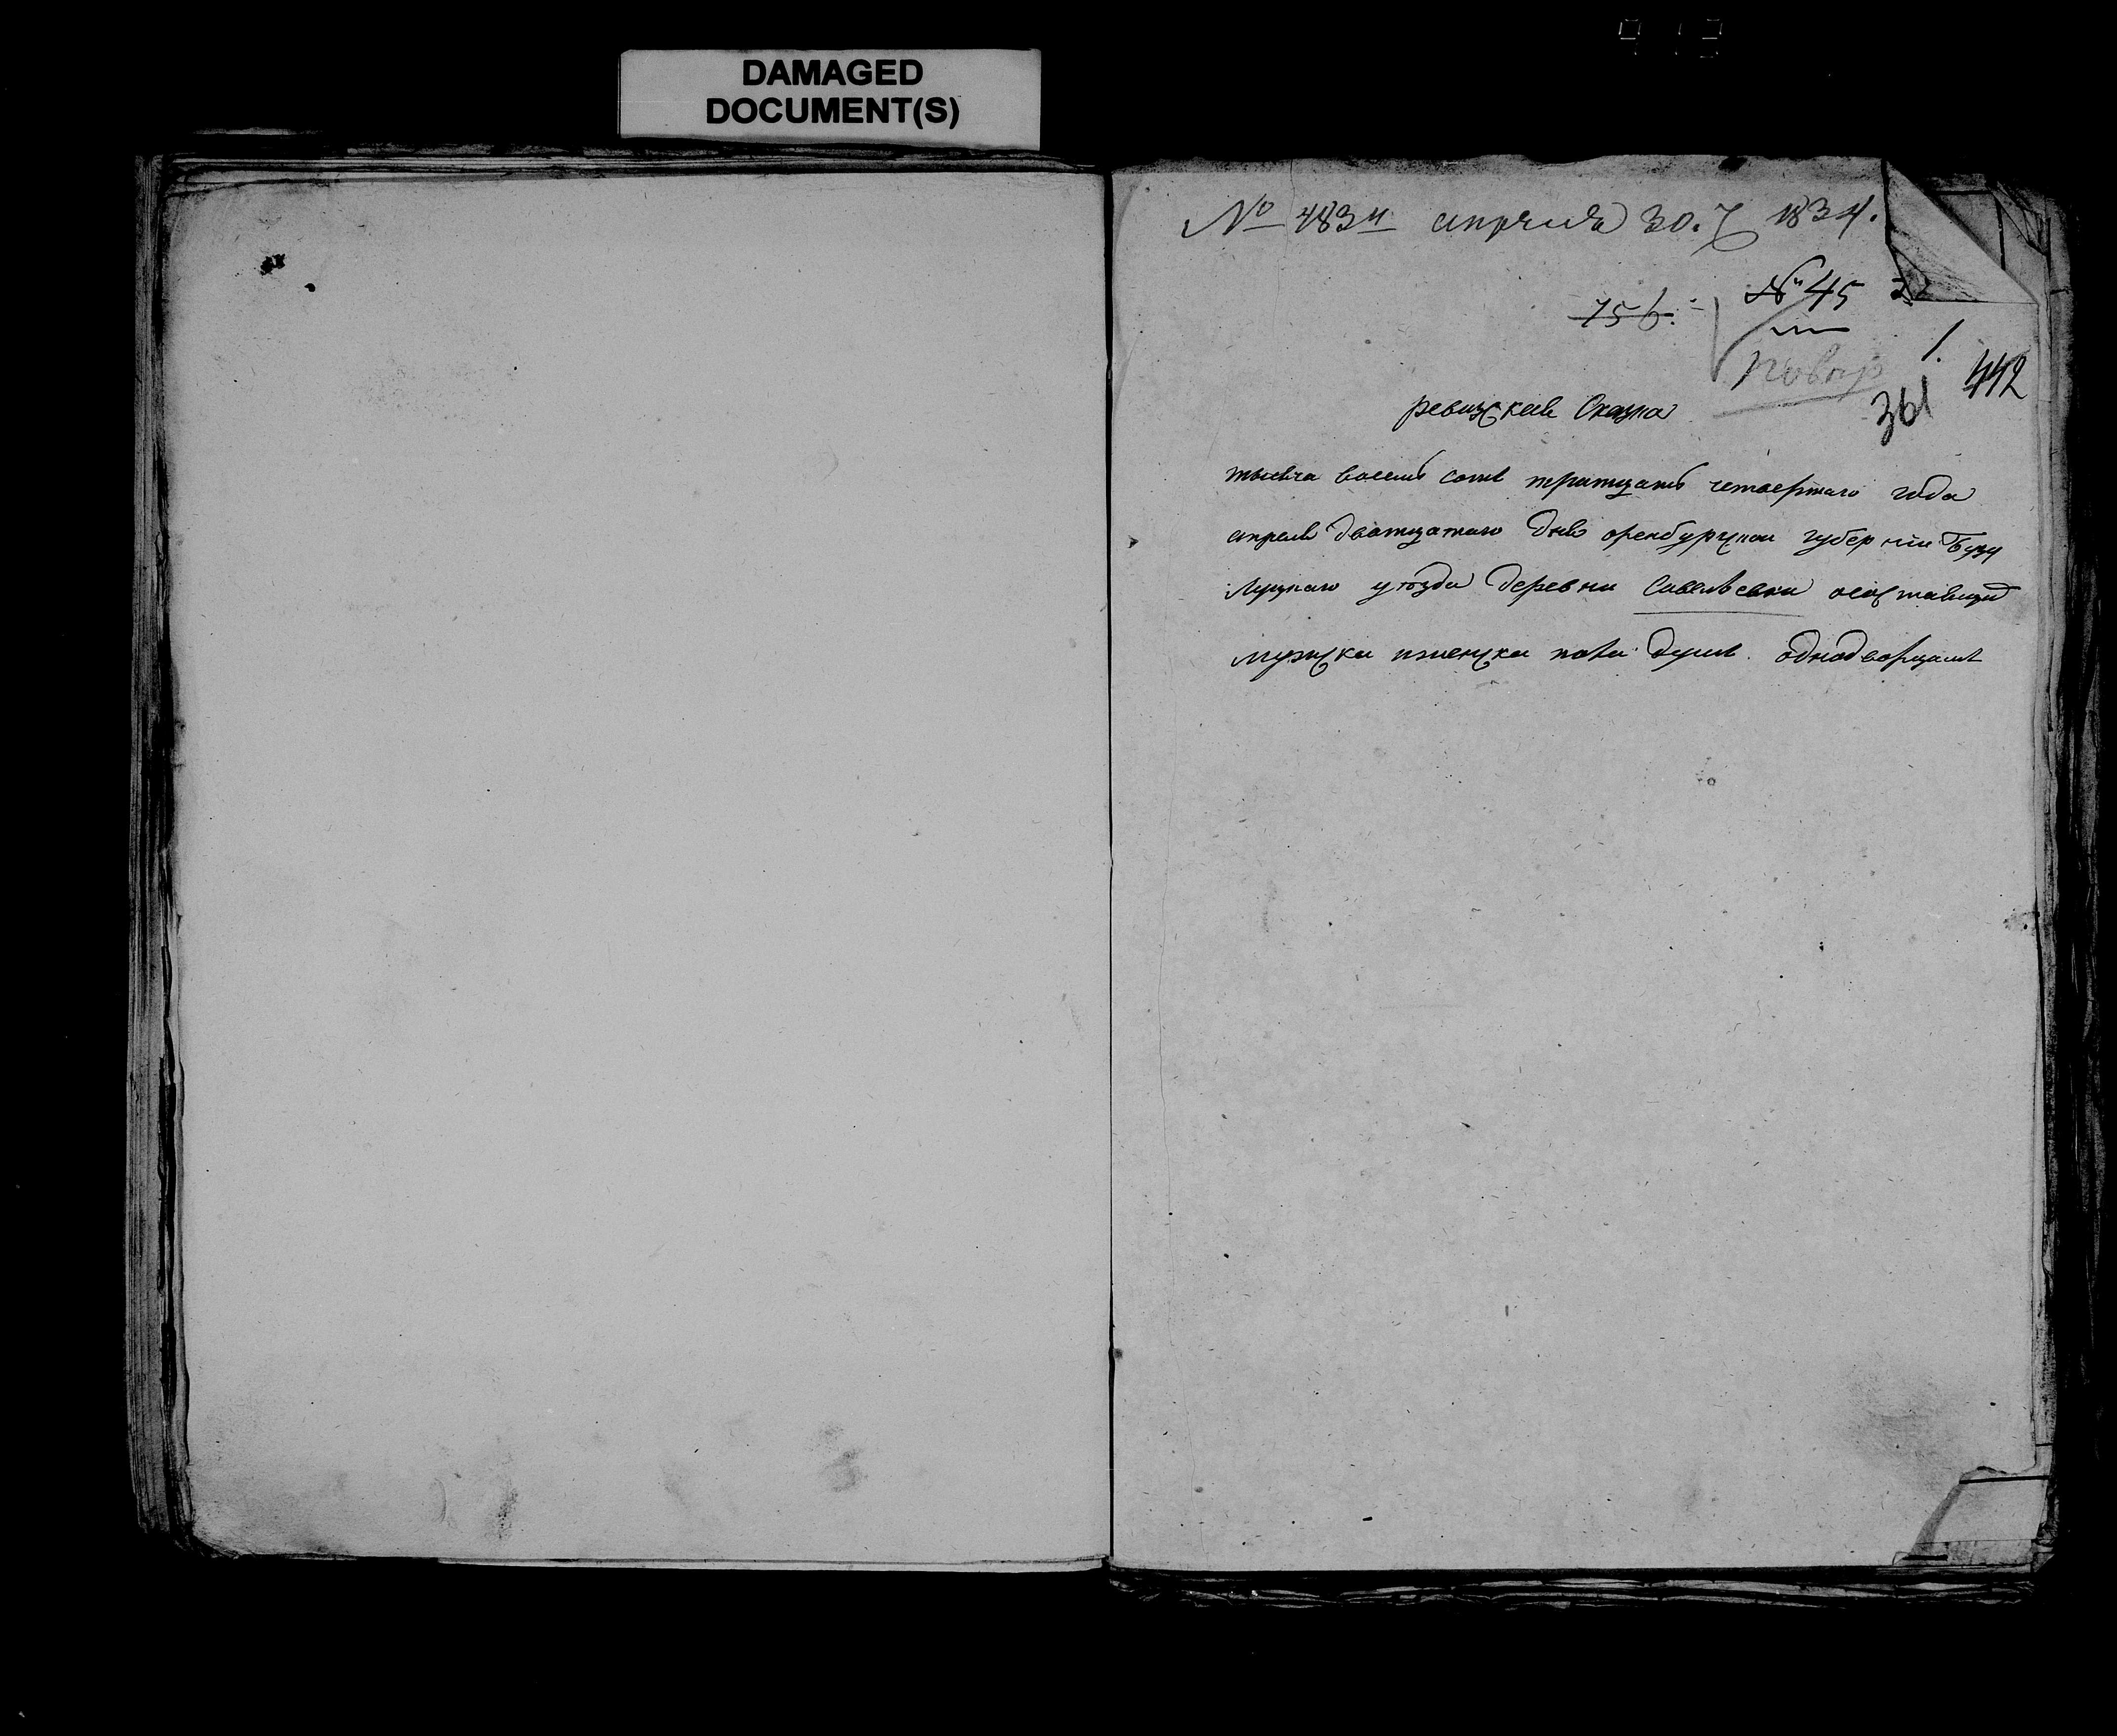 DAMAGED
DOCUMENT(S)
№ 4834 апреля 30. 1834.
№ 45
756.
1.
442
361
ревизская Сказка
тысяча восемь сотъ тритцать четвертаго года
апреля дватцатаго дня оренбургской губернии Бузу
луцкаго уѣзда деревни Савельевки
мужска иженска пола душъ однодворцамъ